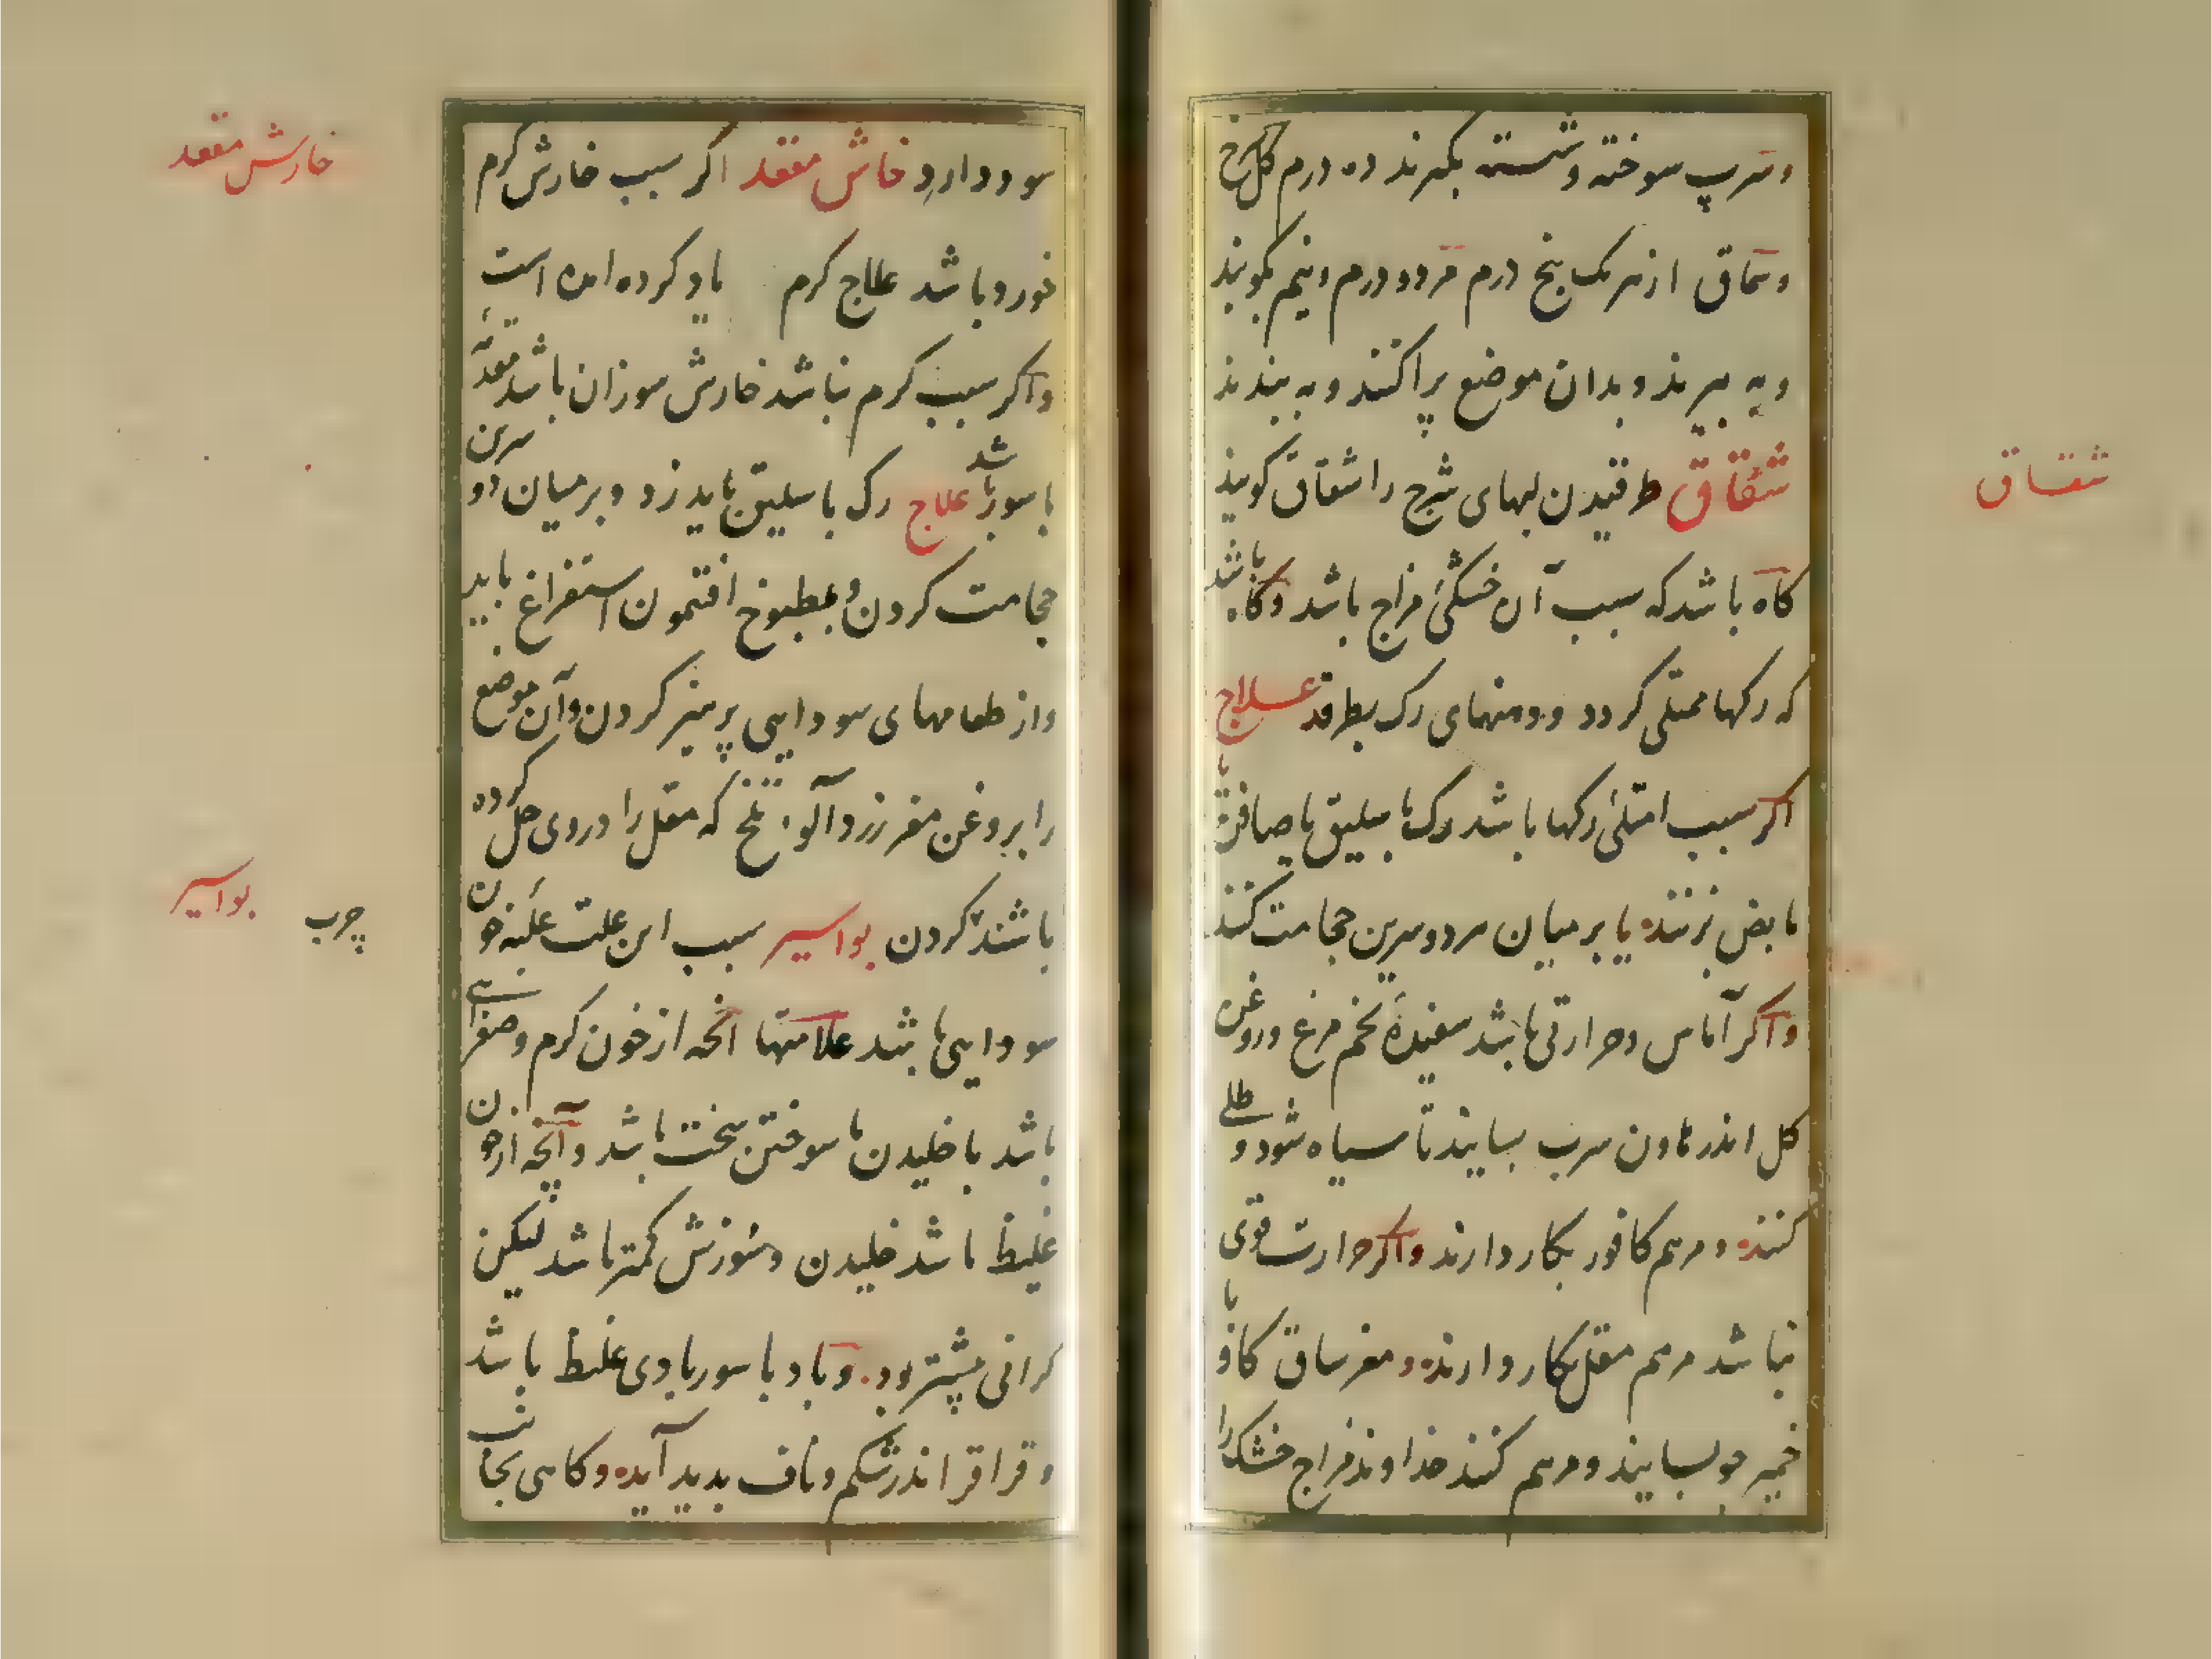 وسرب سوخته وشسته بكيرند ده درم كل سرخ
وسماق از هر يک پنج درم مر دو درم ونيم بكوبند
وبه بيزند وبدان موضع پراكنند وبه بندند
شقاق طرقيدن لبهای شرج را شقاق كويند
شقاق
كاه باشد كه سبب آن خشكئ مزاج باشد وكاه باشد
كه ركها ممتلی كردد ودهنهای رک بطرقد علاج
اكر سبب امتلئ ركها باشد رک باسليق يا صافن يا
مابض بزنند يا بر ميان هر دو سرين حجامت كنند
واكر آماس وحرارتی باشد سفيدهٔ تخم مرغ وروغن
كل اندر هاون سرب بسايند تا سياه شود وطلی
كنند ومرهم كافور بكار دارند واكر حرارت قوی
نباشد مرهم مقل بكار دارند ومغز ساق كاو يا
خمير جو بسايند ومرهم كنند خداوند مزاج خشک را
سود دارد خارش مقعد اكر سبب خارش كرم
خارش مقعد
خورد باشد علاج كرم ياد كرده امده است
واكر سبب كرم نباشد خارش سوزان باشد مقدمهٔ
باسور باشد علاج رک باسليق بايد زد وبر ميان دو سرين
حجامت كردن وبمطبوخ افتمون استفراغ بايد
واز طعامهای سودايی پرهيز كردن وآن موضع
را بروغن مغز زردآلوء تلخ كه مقل را در وی حل كرده
باشند كردن بواسير سبب اين علت غلبهٔ خون
چرب
بواسير
سودايی باشد علامتها انچه از خون كرم وصفرايی
باشد با خليدن يا سوختن سخت باشد وآنچه از خون
غليظ باشد خليدن وسوزش كمتر باشد ليكن
كرانی بيشتر بود وباد باسور بادی غليظ باشد
وقراقر اندر شكم وناف بديد آيد وكاهی بجانب